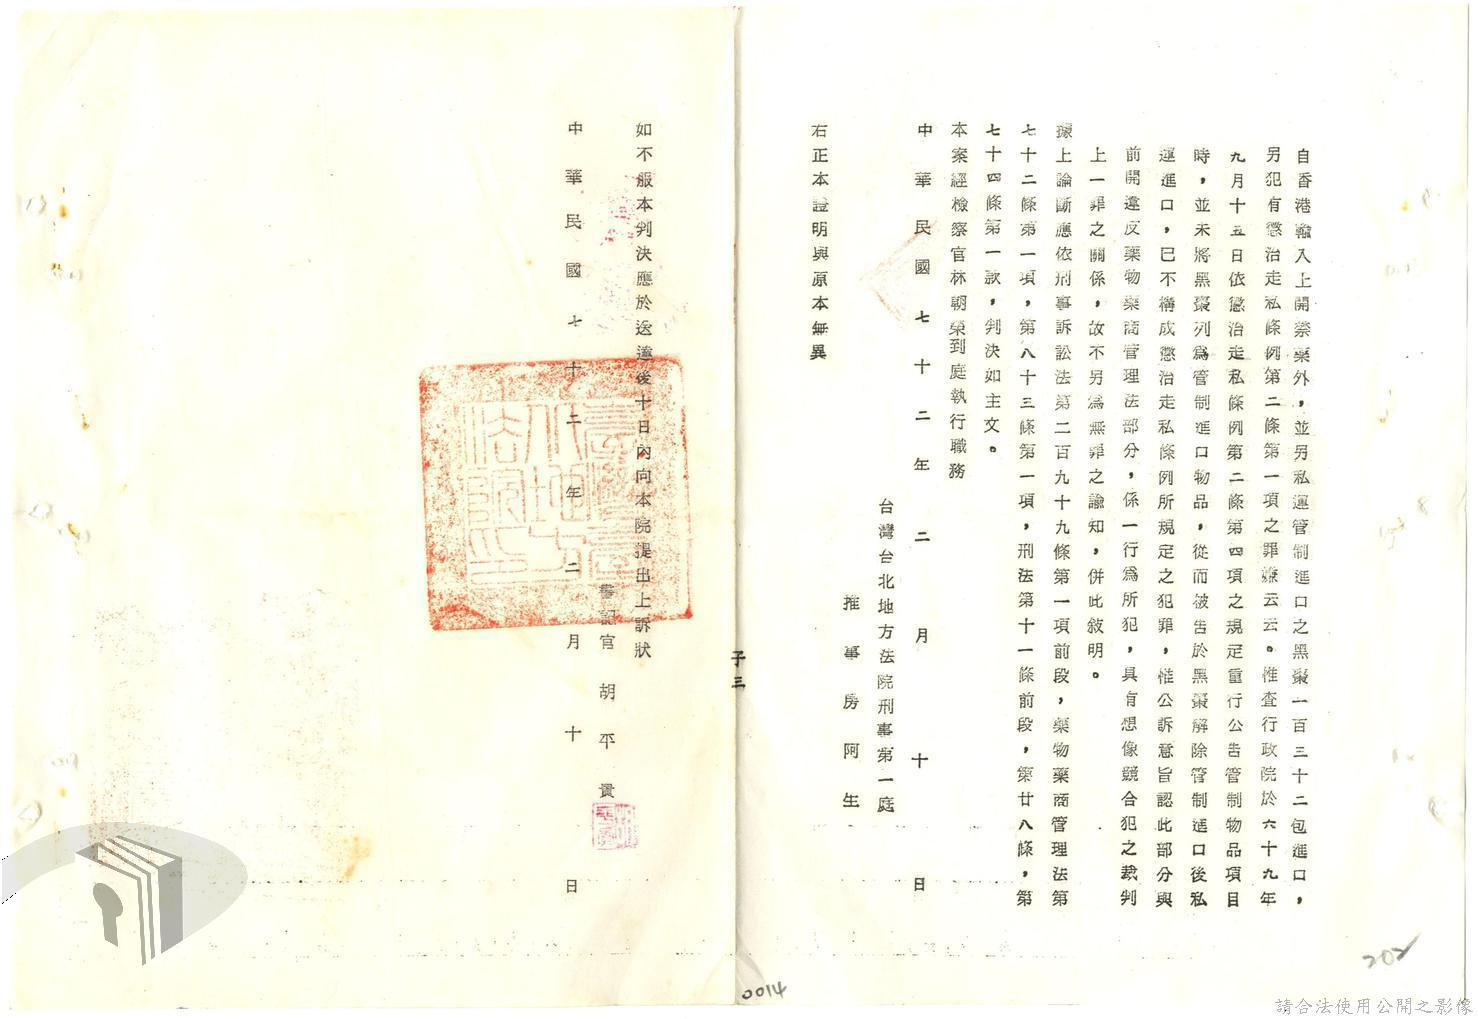 自香港輸入上開禁藥外，並另私運管制進口之黑棗一百三十二包進口，
另犯有懲治走私條例第二條第一項之罪嫌云云。惟查行政院於六十九年
九月十五日依懲治走私條例第二條第四項之規定重行公告管制物品項目
時，並未將黑棗列為管制進口物品，從而被告於黑棗解除管制進口後私
運進口，已不構成懲治走私條例所規定之犯罪，惟公訴意旨認此部分與
前開違反藥物藥商管理法部分，係一行為所犯，具有想像競合犯之裁判
上一罪之關係，故不另為無罪之諭知，併此敘明。
據上論斷應依刑事訴訟法第二百九十九條第一項前段，藥物藥商管理法第
七十二條第一項，第八十三條第一項，刑法第十一條前段，第廿八條，第
七十四條第一款，判決如主文。
本案經檢察官林朝榮到庭執行職務
中華民國七十二年二月十日
台灣台北地方法院刑事第一庭
推事房阿生
右正本證明與原本無異
如不服本判決應於送達後十日內向本院提出上訴狀
書記官 胡平貴
中華民國七十二年二月十日
子三
0014
202
請合法使用公開之影像